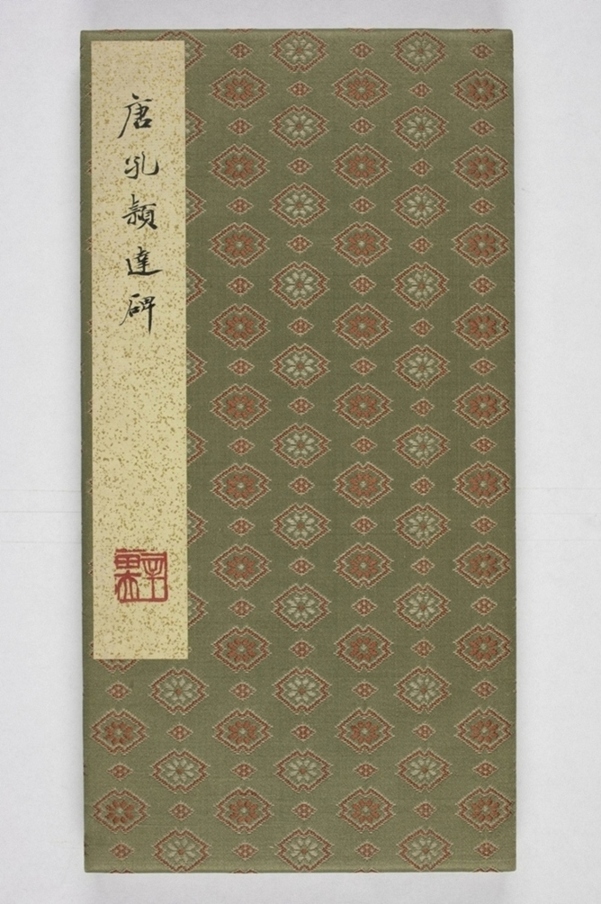 唐孔穎達碑